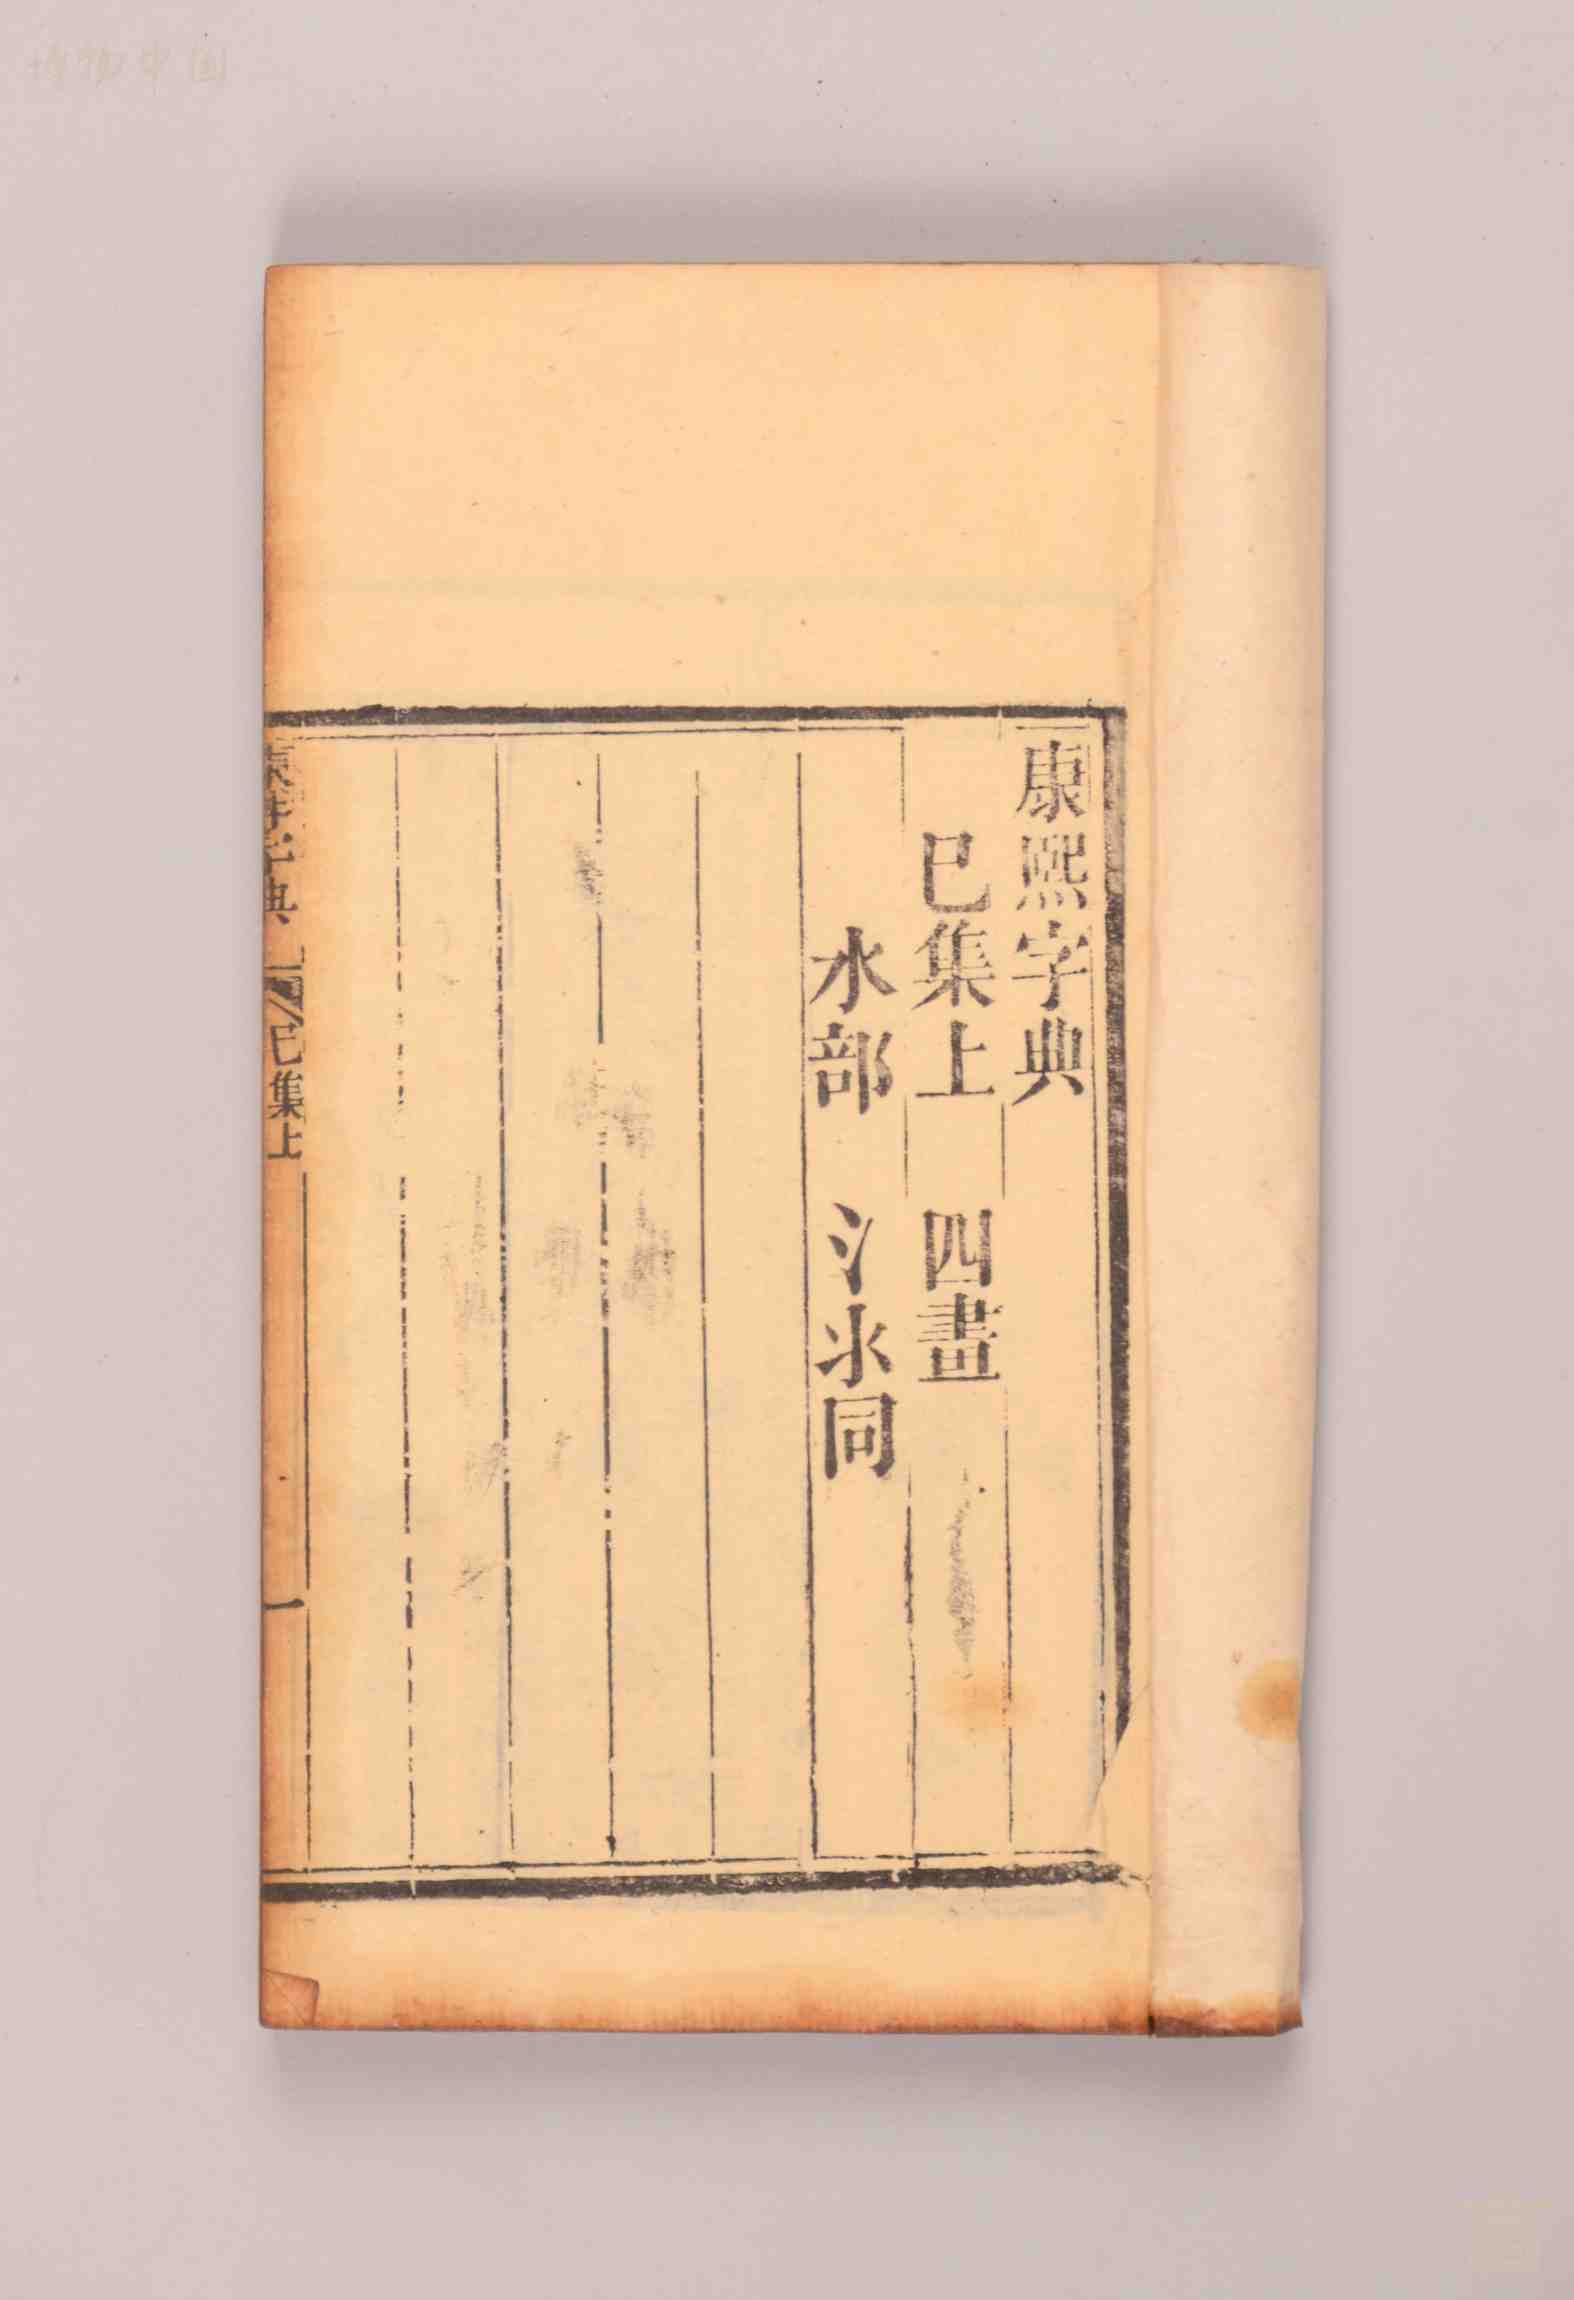 康熙字典
巳集上 四畫
水部 氵氺同
康熙字典 巳集上 一
博物中国